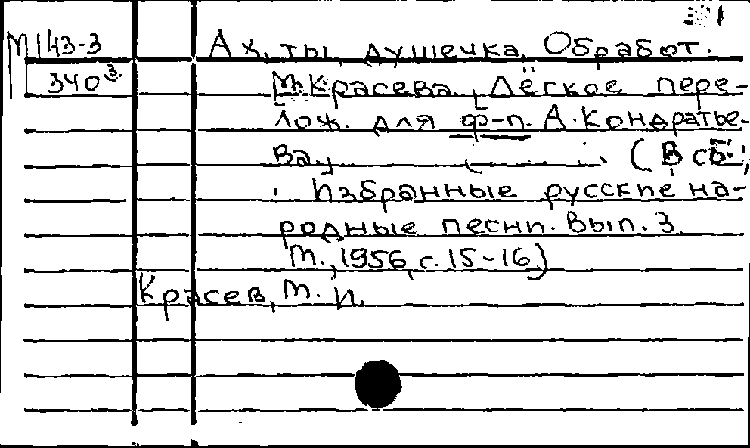 М 143-3 Ах, ты, душечка. Обработ.
340³ М. Красева. Лёгкое пере-
лож. для ф-п. А. Кондратье-
ва. (В сб.:
Избранные русские на-
родные песни. Вып. 3.
М., 1956, с. 15-16)
Красев, М. И.